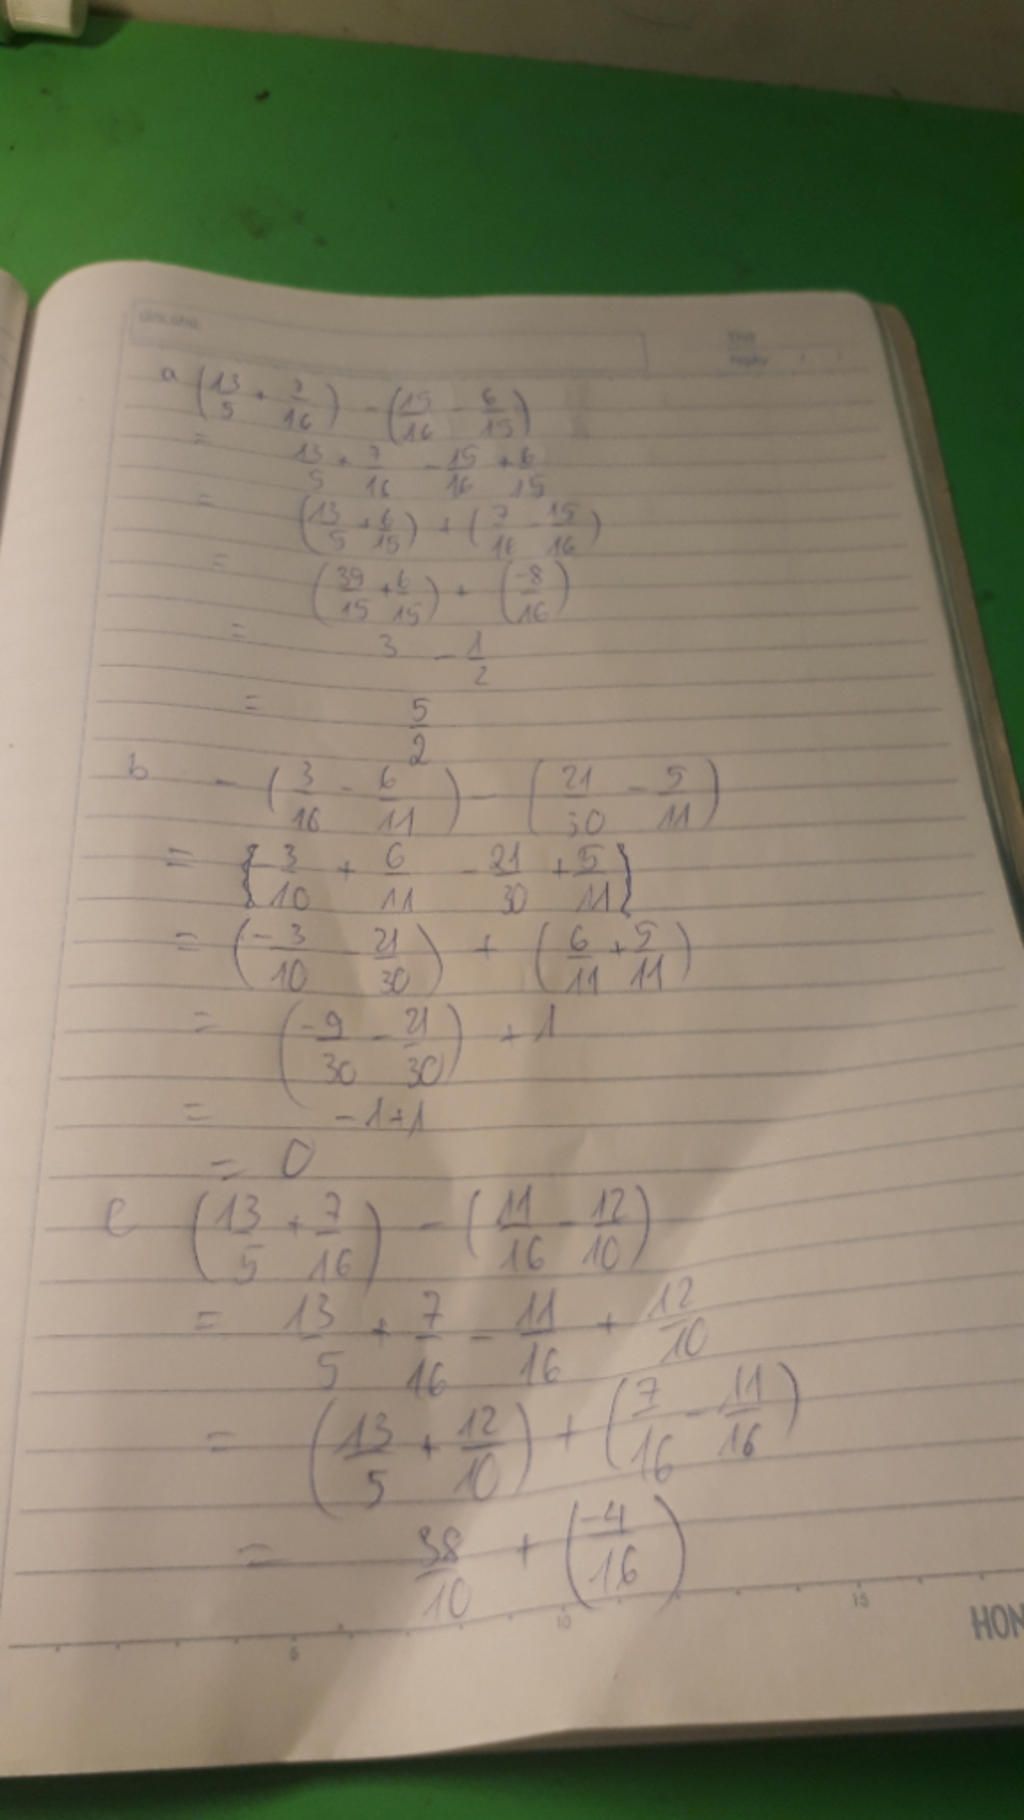 a (13/5 + 7/16) - (15/16 - 6/15)
= 13/5 + 7/16 - 15/16 + 6/15
= (13/5 + 6/15) + (7/16 - 15/16)
= (39/15 + 6/15) + (-8/16)
= 3 - 1/2
= 5/2
b - (3/16 - 6/11) - (21/30 - 5/11)
= {-3/10 + 6/11 - 21/30 + 5/11}
= (-3/10 - 21/30) + (6/11 + 5/11)
= (-9/30 - 21/30) + 1
= -1+1
= 0
c (13/5 + 7/16) - (11/16 - 12/10)
= 13/5 + 7/16 - 11/16 + 12/10
= (13/5 + 12/10) + (7/16 - 11/16)
= 38/10 + (-4/16)
5 10 15
HON